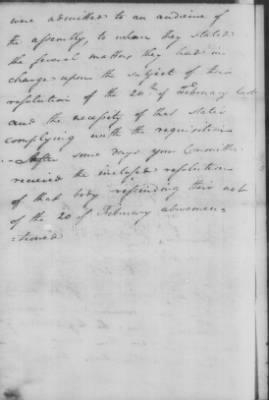 were admitted to an audience of
the assembly, to whom they stated
the several matters they had in
charge upon the subject of their
resolution of the 20th of February last
and the necessity of that State
complying with the requisition
After some days your Committee
received the inclosed resolution
of that body rescinding their act
of the 20 of February abovemen=
=tioned